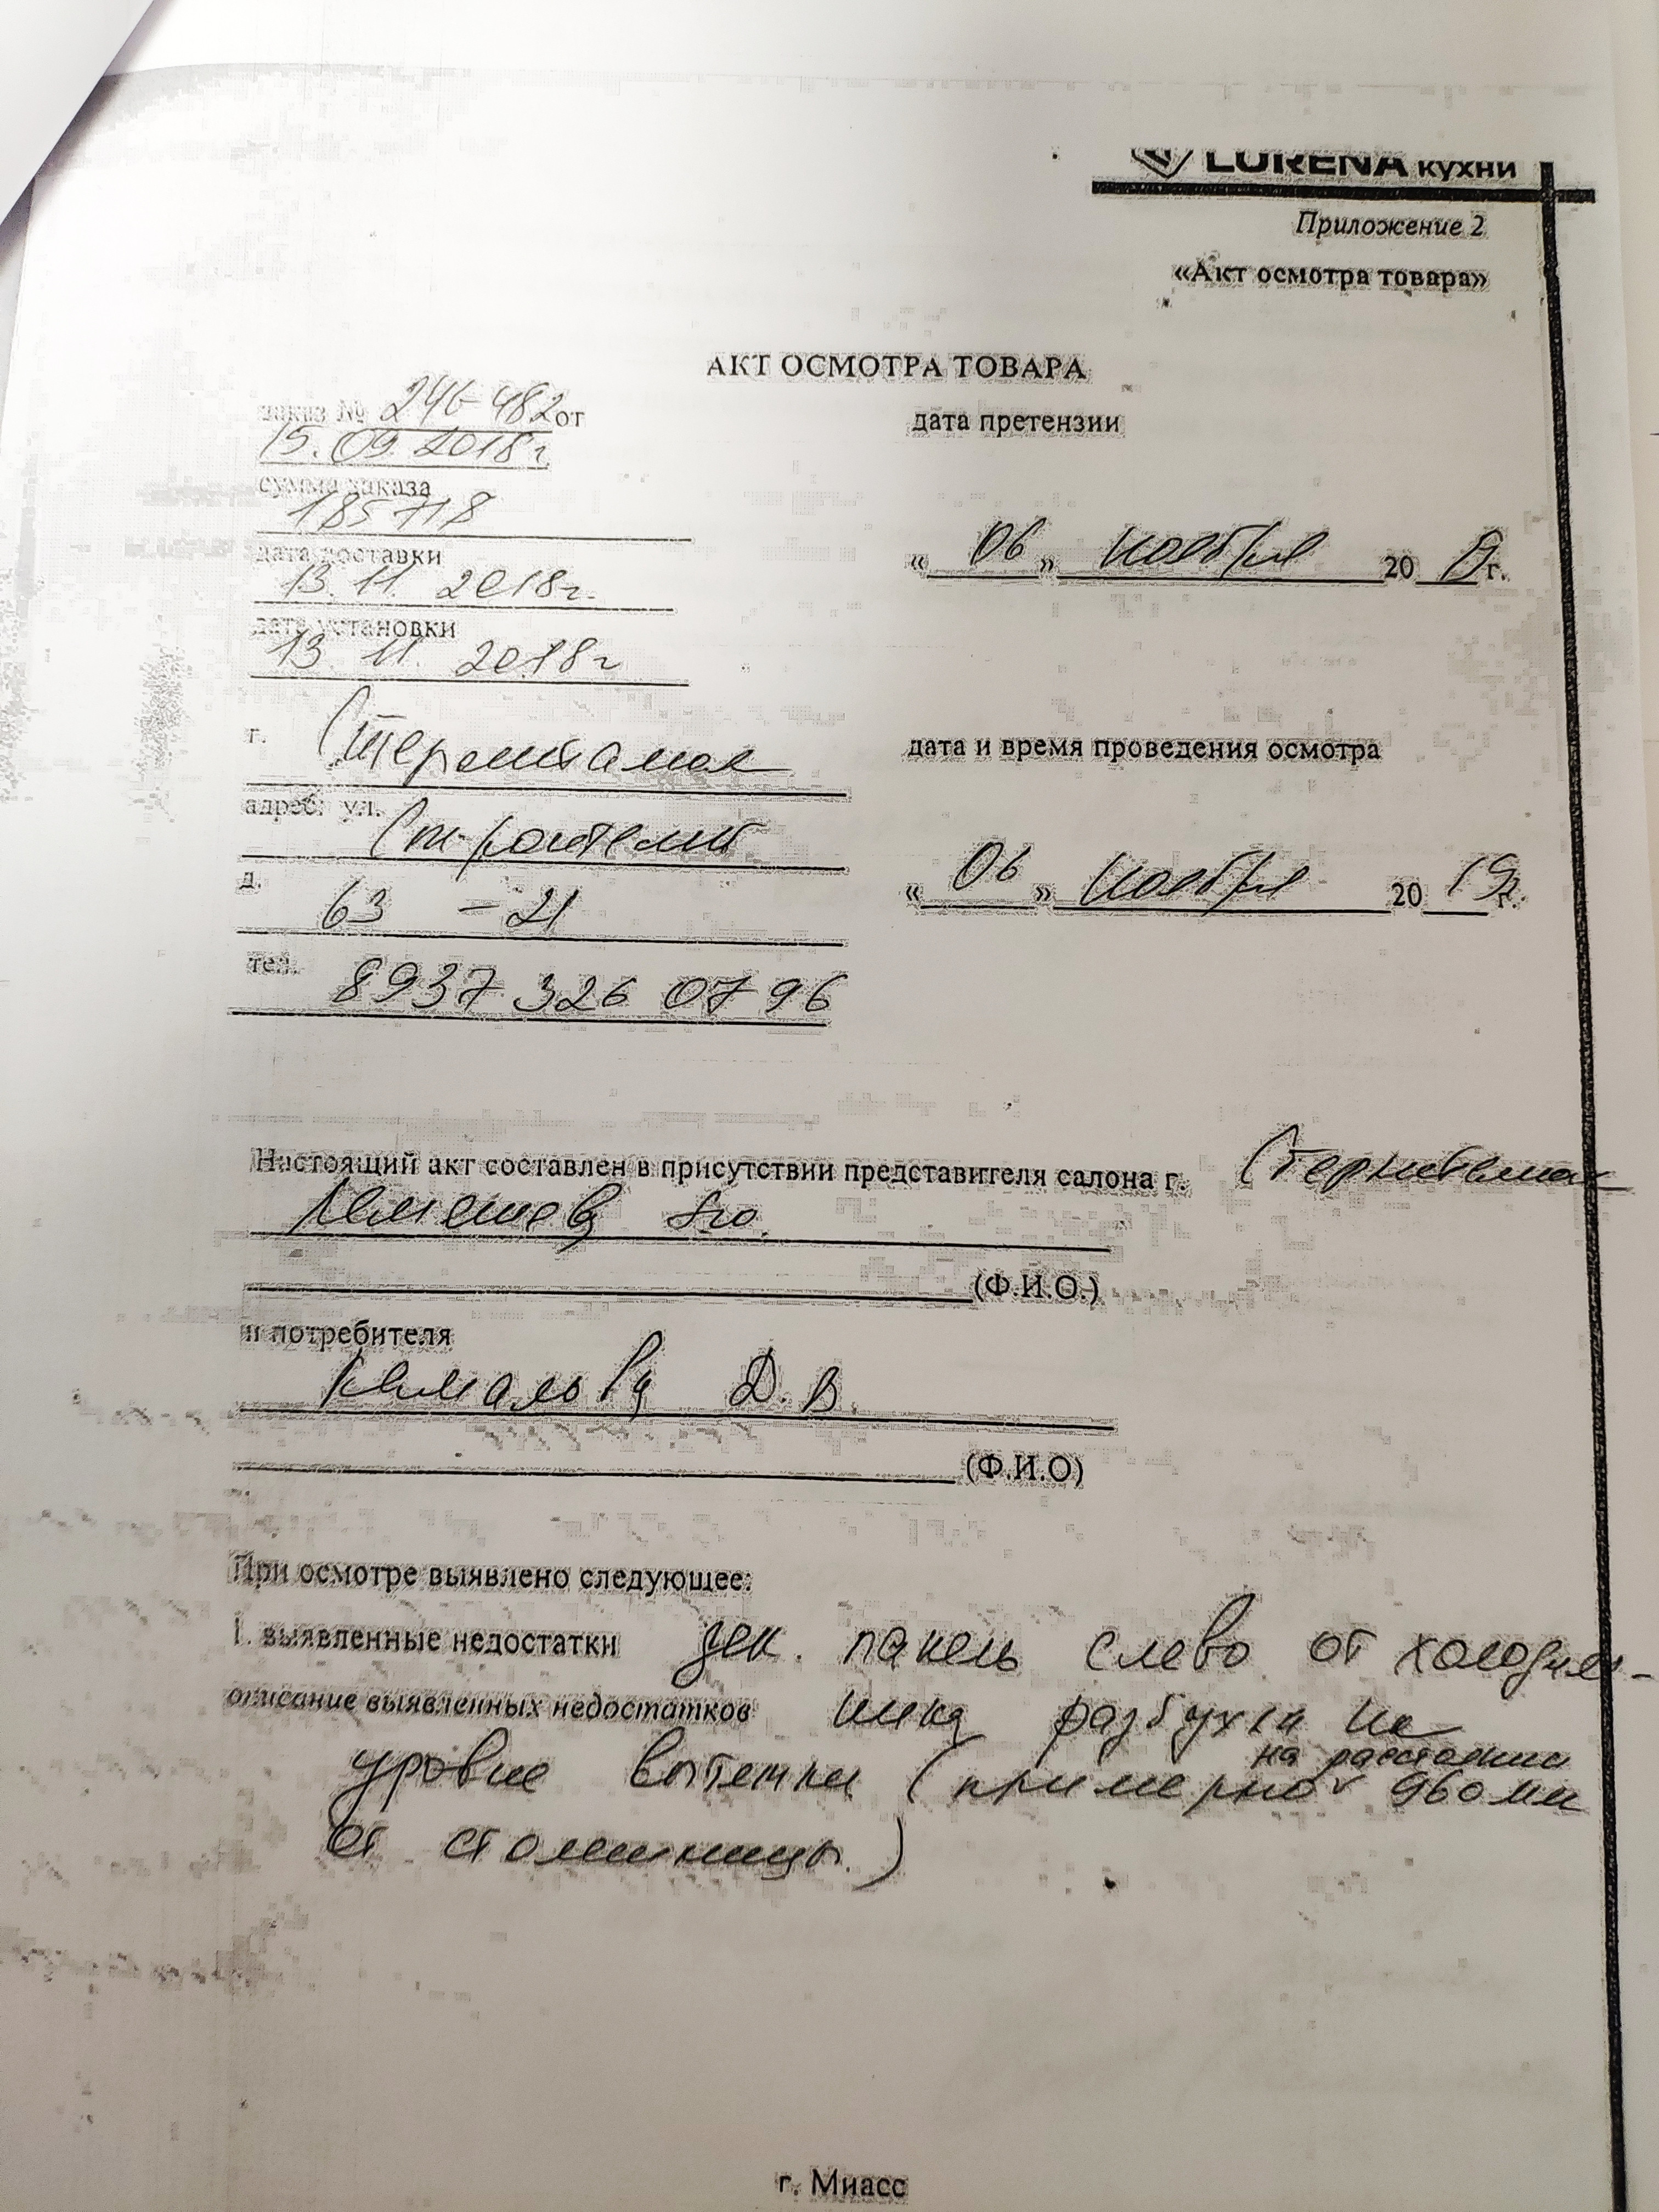 LORENA кухни
Приложение 2
«Акт осмотра товара»
АКТ ОСМОТРА ТОВАРА
заказ № 246-482 от
15.09.2018г.
сумма заказа
185718
дата доставки
13.11. 2018г.
дата установки
13 11. 2018г
г. Стерлитамак
адрес: ул.
Строителей
д.
63 - 21
тел. 8937 326 07 96
дата претензии
« 06 » ноября 20 г.
дата и время проведения осмотра
« 06 » ноября 20 19г.
Настоящий акт составлен в присутствии представителя салона г. Стерлитамак
(Ф.И.О.)
и потребителя
Д.В.
(Ф.И.О)
При осмотре выявлено следующее:
1. выявленные недостатки дек. панель слева от холодиль-
описание выявленных недостатков ника разбухла на
уровне вытяжки (примерно на расстоянии 960 мм
от столешницы.)
г. Миасс